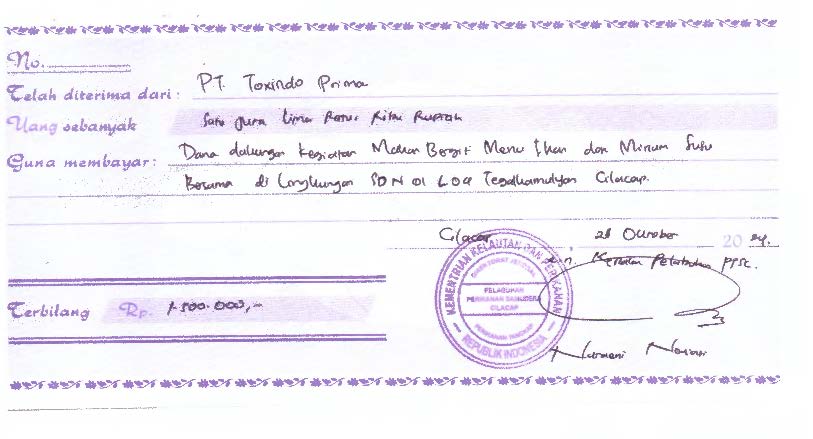 No.
Telah diterima dari : PT. Toxindo Prima
Uang sebanyak Satu Juta Lima Ratus Ribu Rupiah
Guna membayar : Dana dukungan Kegiatan Makan Bergizi Menu Ikan dan Minum Susu
Bersama di Lingkungan SDN 01 & 09 Tegalkamulyan Cilacap.
Cilacap, 28 Oktober 2024.
a.n. Kepala Pelabuhan PPSC.
KEMENTRIAN KELAUTAN DAN PERIKANAN
DIREKTORAT JENDRAL
PELABUHAN
PERIKANAN SAMUDERA
CILACAP
PERIKANAN TANGKAP
REPUBLIK INDONESIA
Terbilang Rp. 1.500.000,-